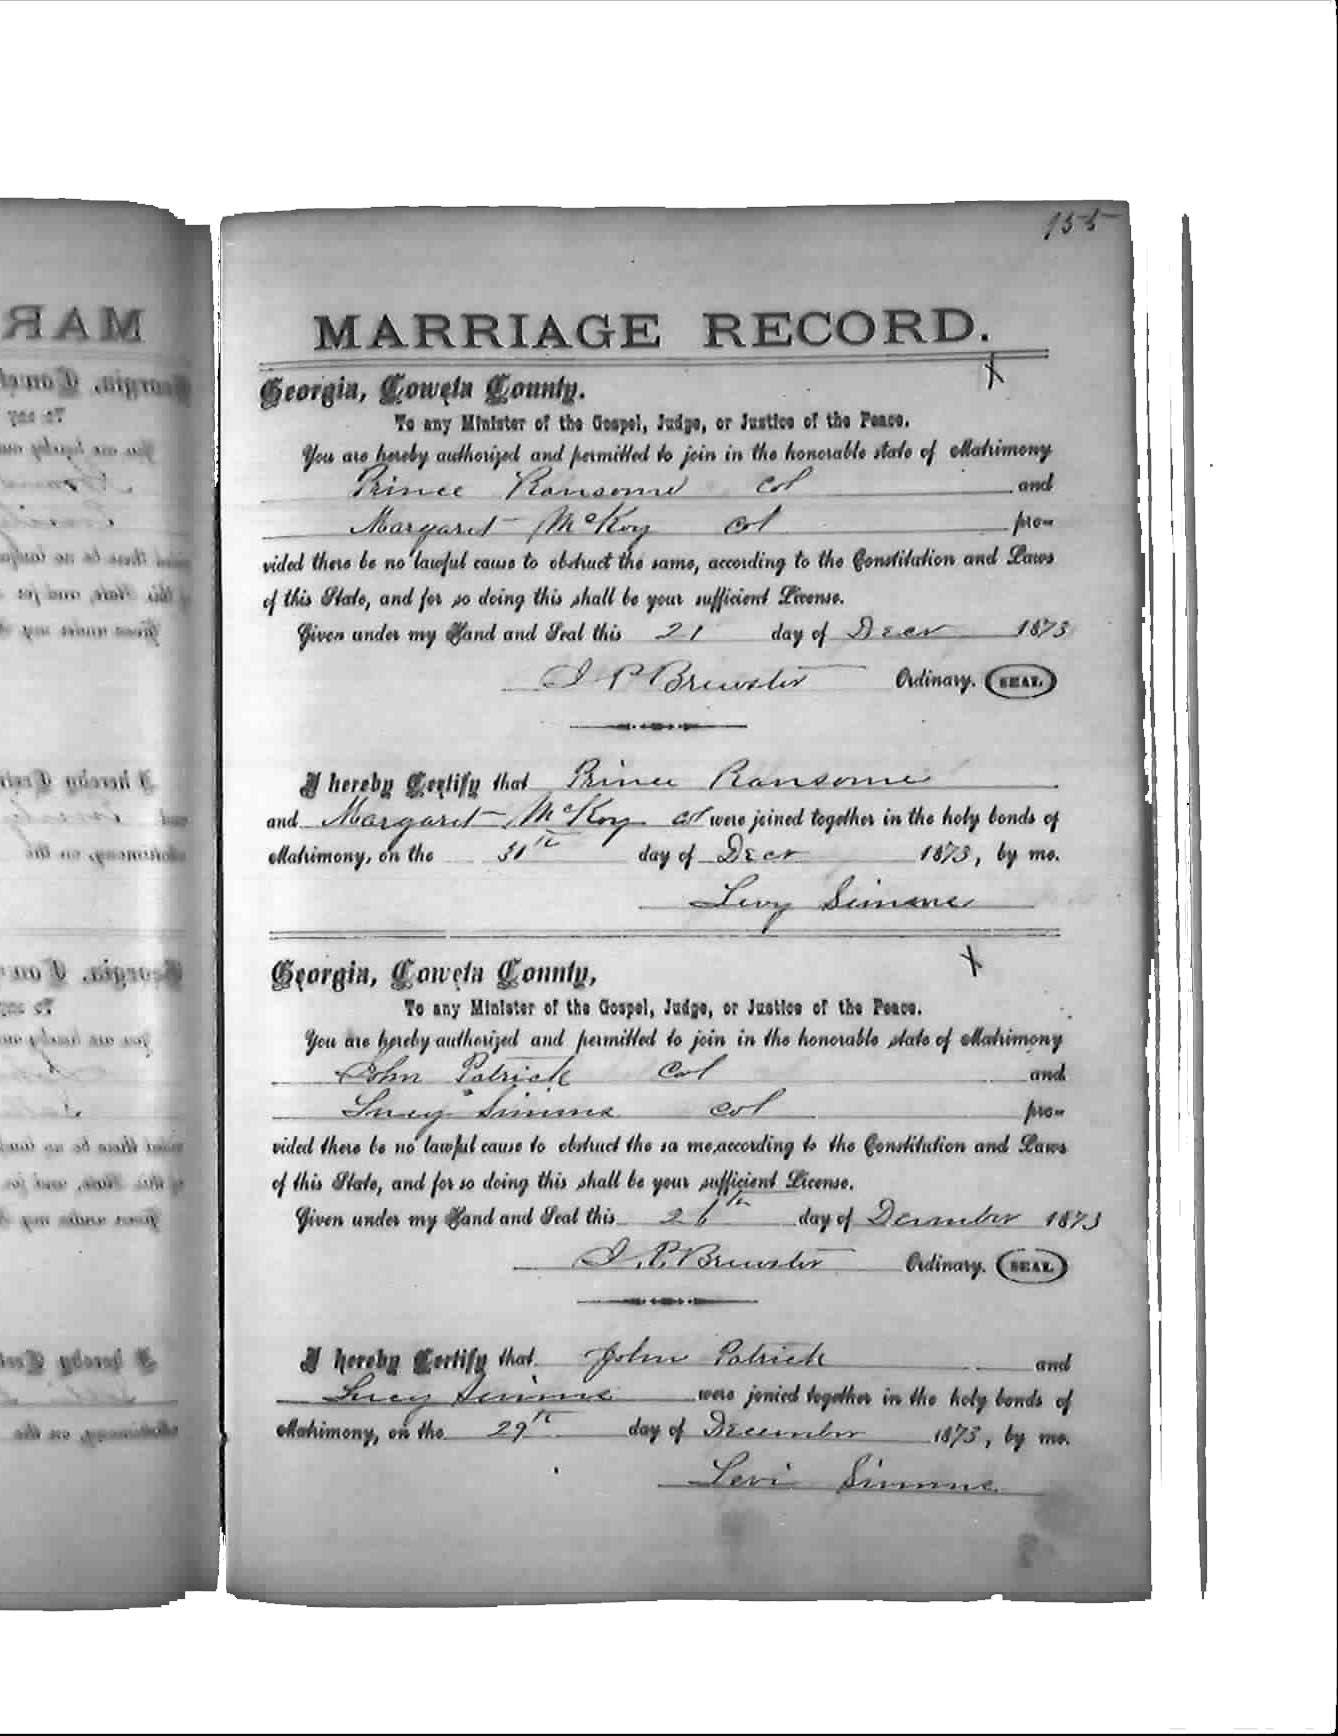 155
MARRIAGE RECORD.
Georgia, Coweta County.
To any Minister of the Gospel, Judge, or Justice of the Peace.
You are hereby authorized and permitted to join in the honorable state of Matrimony
Prince Ransome col and
Margaret McKoy col pro-
vided there be no lawful cause to obstruct the same, according to the Constitution and Laws
of this State, and for so doing this shall be your sufficient License.
Given under my Hand and Seal this 21 day of Decr 1873
J P Brewster Ordinary. SEAL
I hereby Certify that Prince Ransome
and Margaret McKoy col were joined together in the holy bonds of
Matrimony, on the day of Decr 1873, by me.
Levy Simms
Georgia, Coweta County,
To any Minister of the Gospel, Judge, or Justice of the Peace.
You are hereby authorized and permitted to join in the honorable state of Matrimony
John Patrick Col and
Lucy Simms col pro-
vided there be no lawful cause to obstruct the sa me,according to the Constitution and Laws
of this State, and for so doing this shall be your sufficient License.
Given under my Hand and Seal this 26th day of December 1873
J. P. Brewster Ordinary. SEAL
I hereby Certify that John Patrick and
Lucy Simms were jonied together in the holy bonds of
Matrimony, on the 29th day of December 1873, by me.
Levi Simms